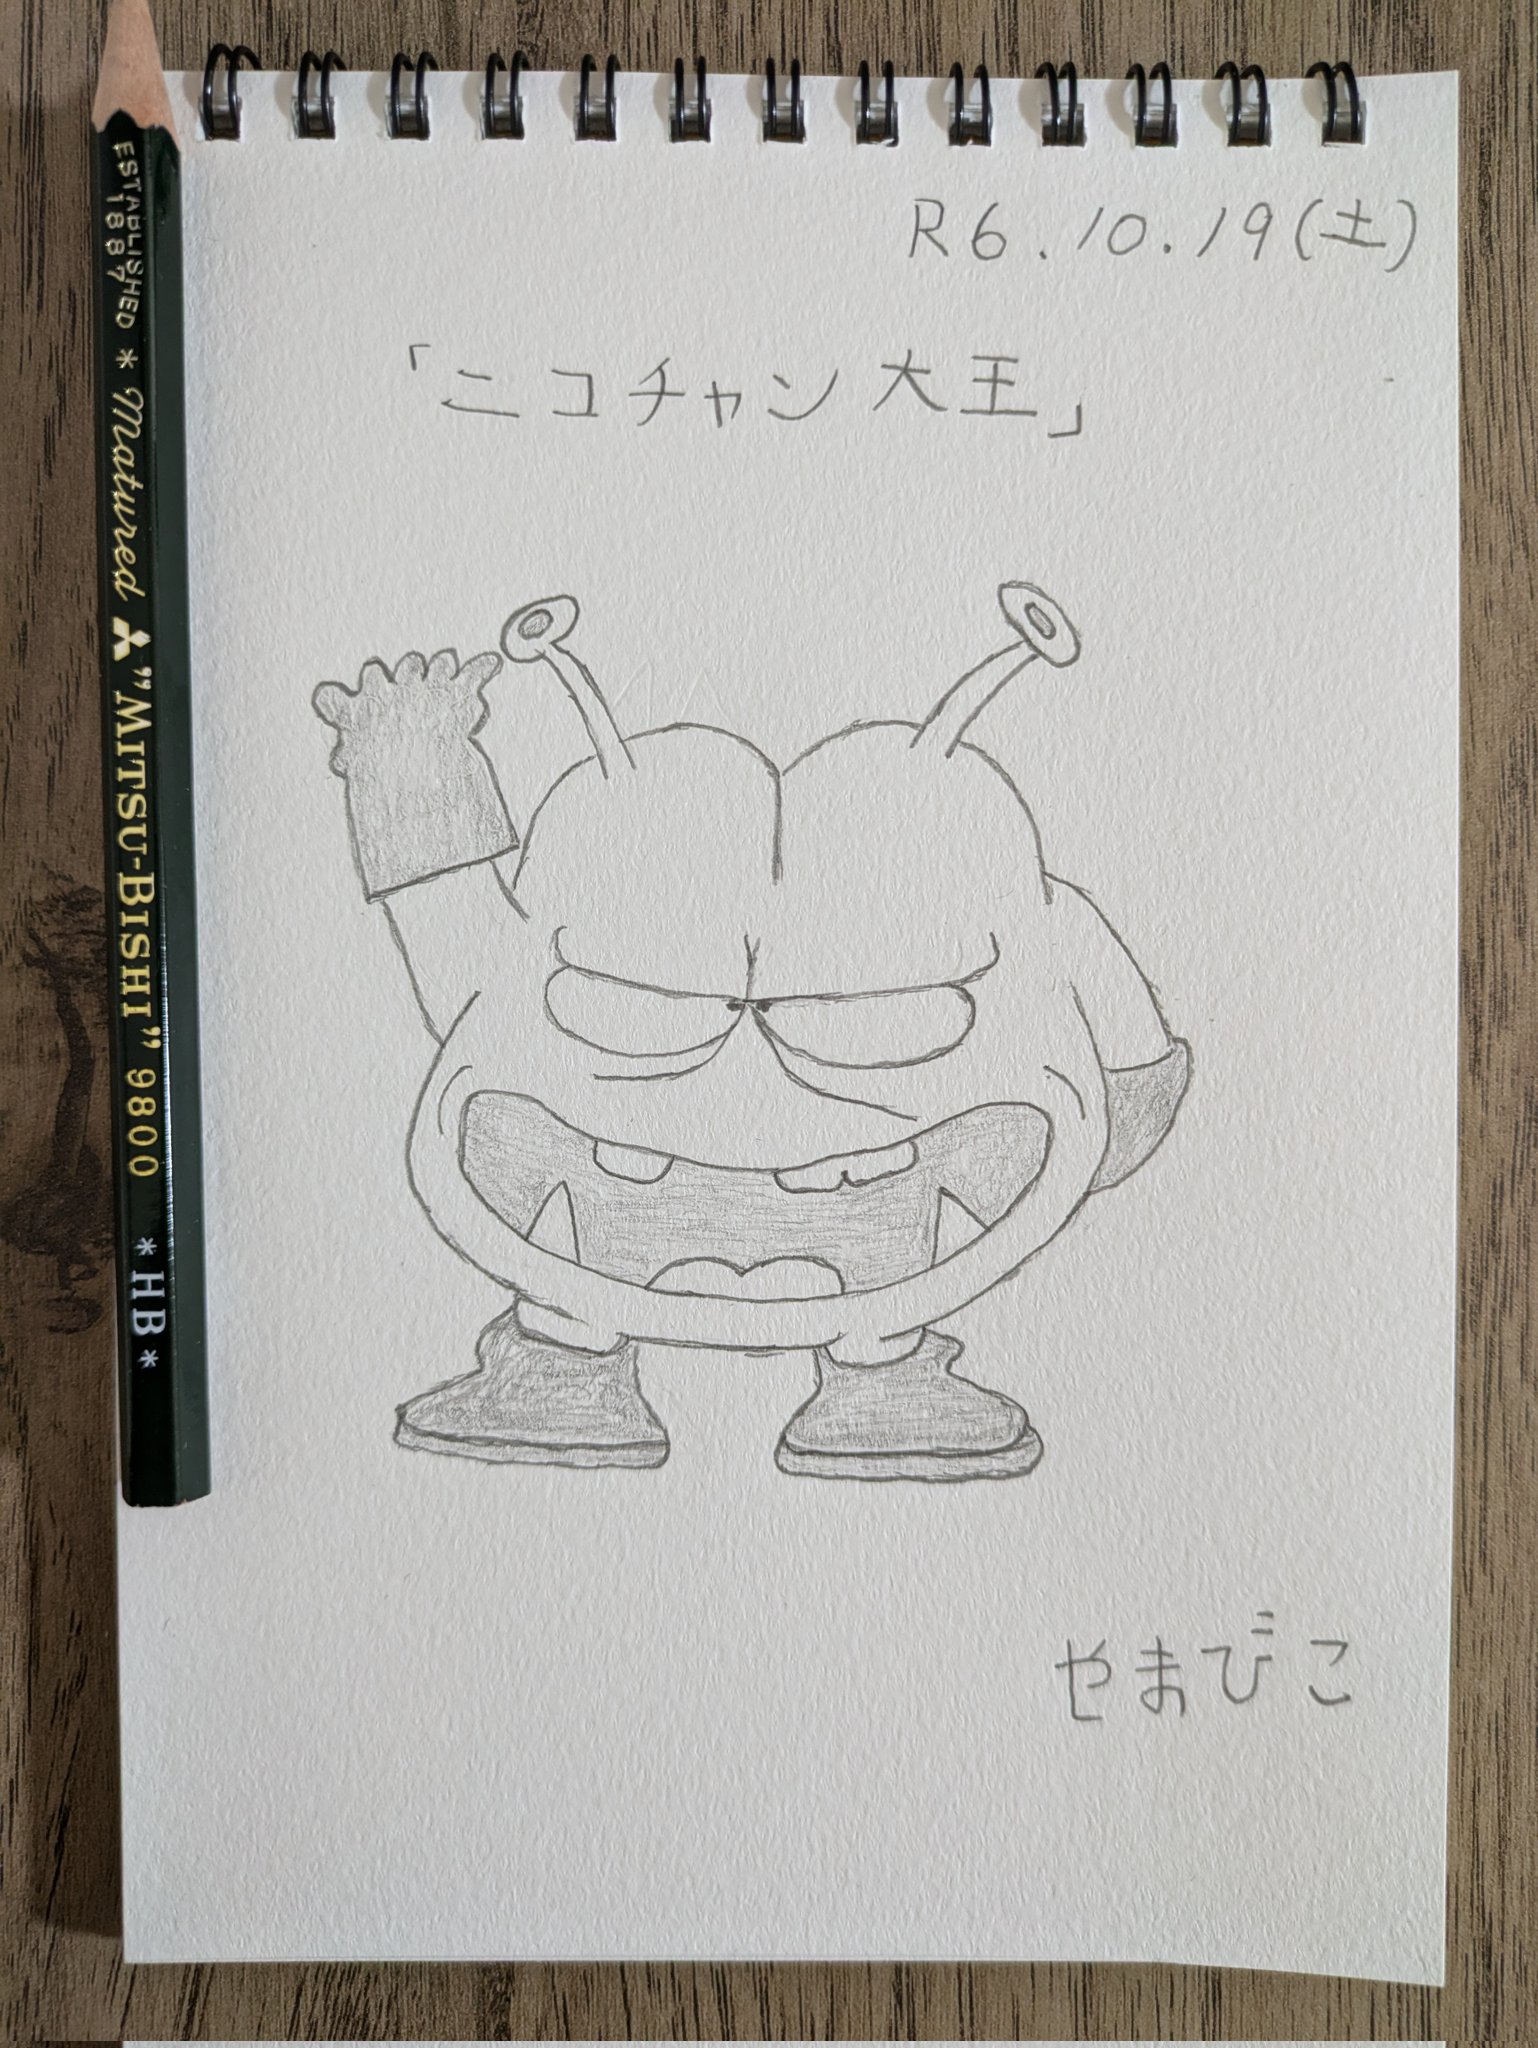 R6.10.19(土)
「ニコチャン大王」
やまびこ
ESTABLISHED 1887 * Matured "MITSU-BISHI" 9800 * HB *